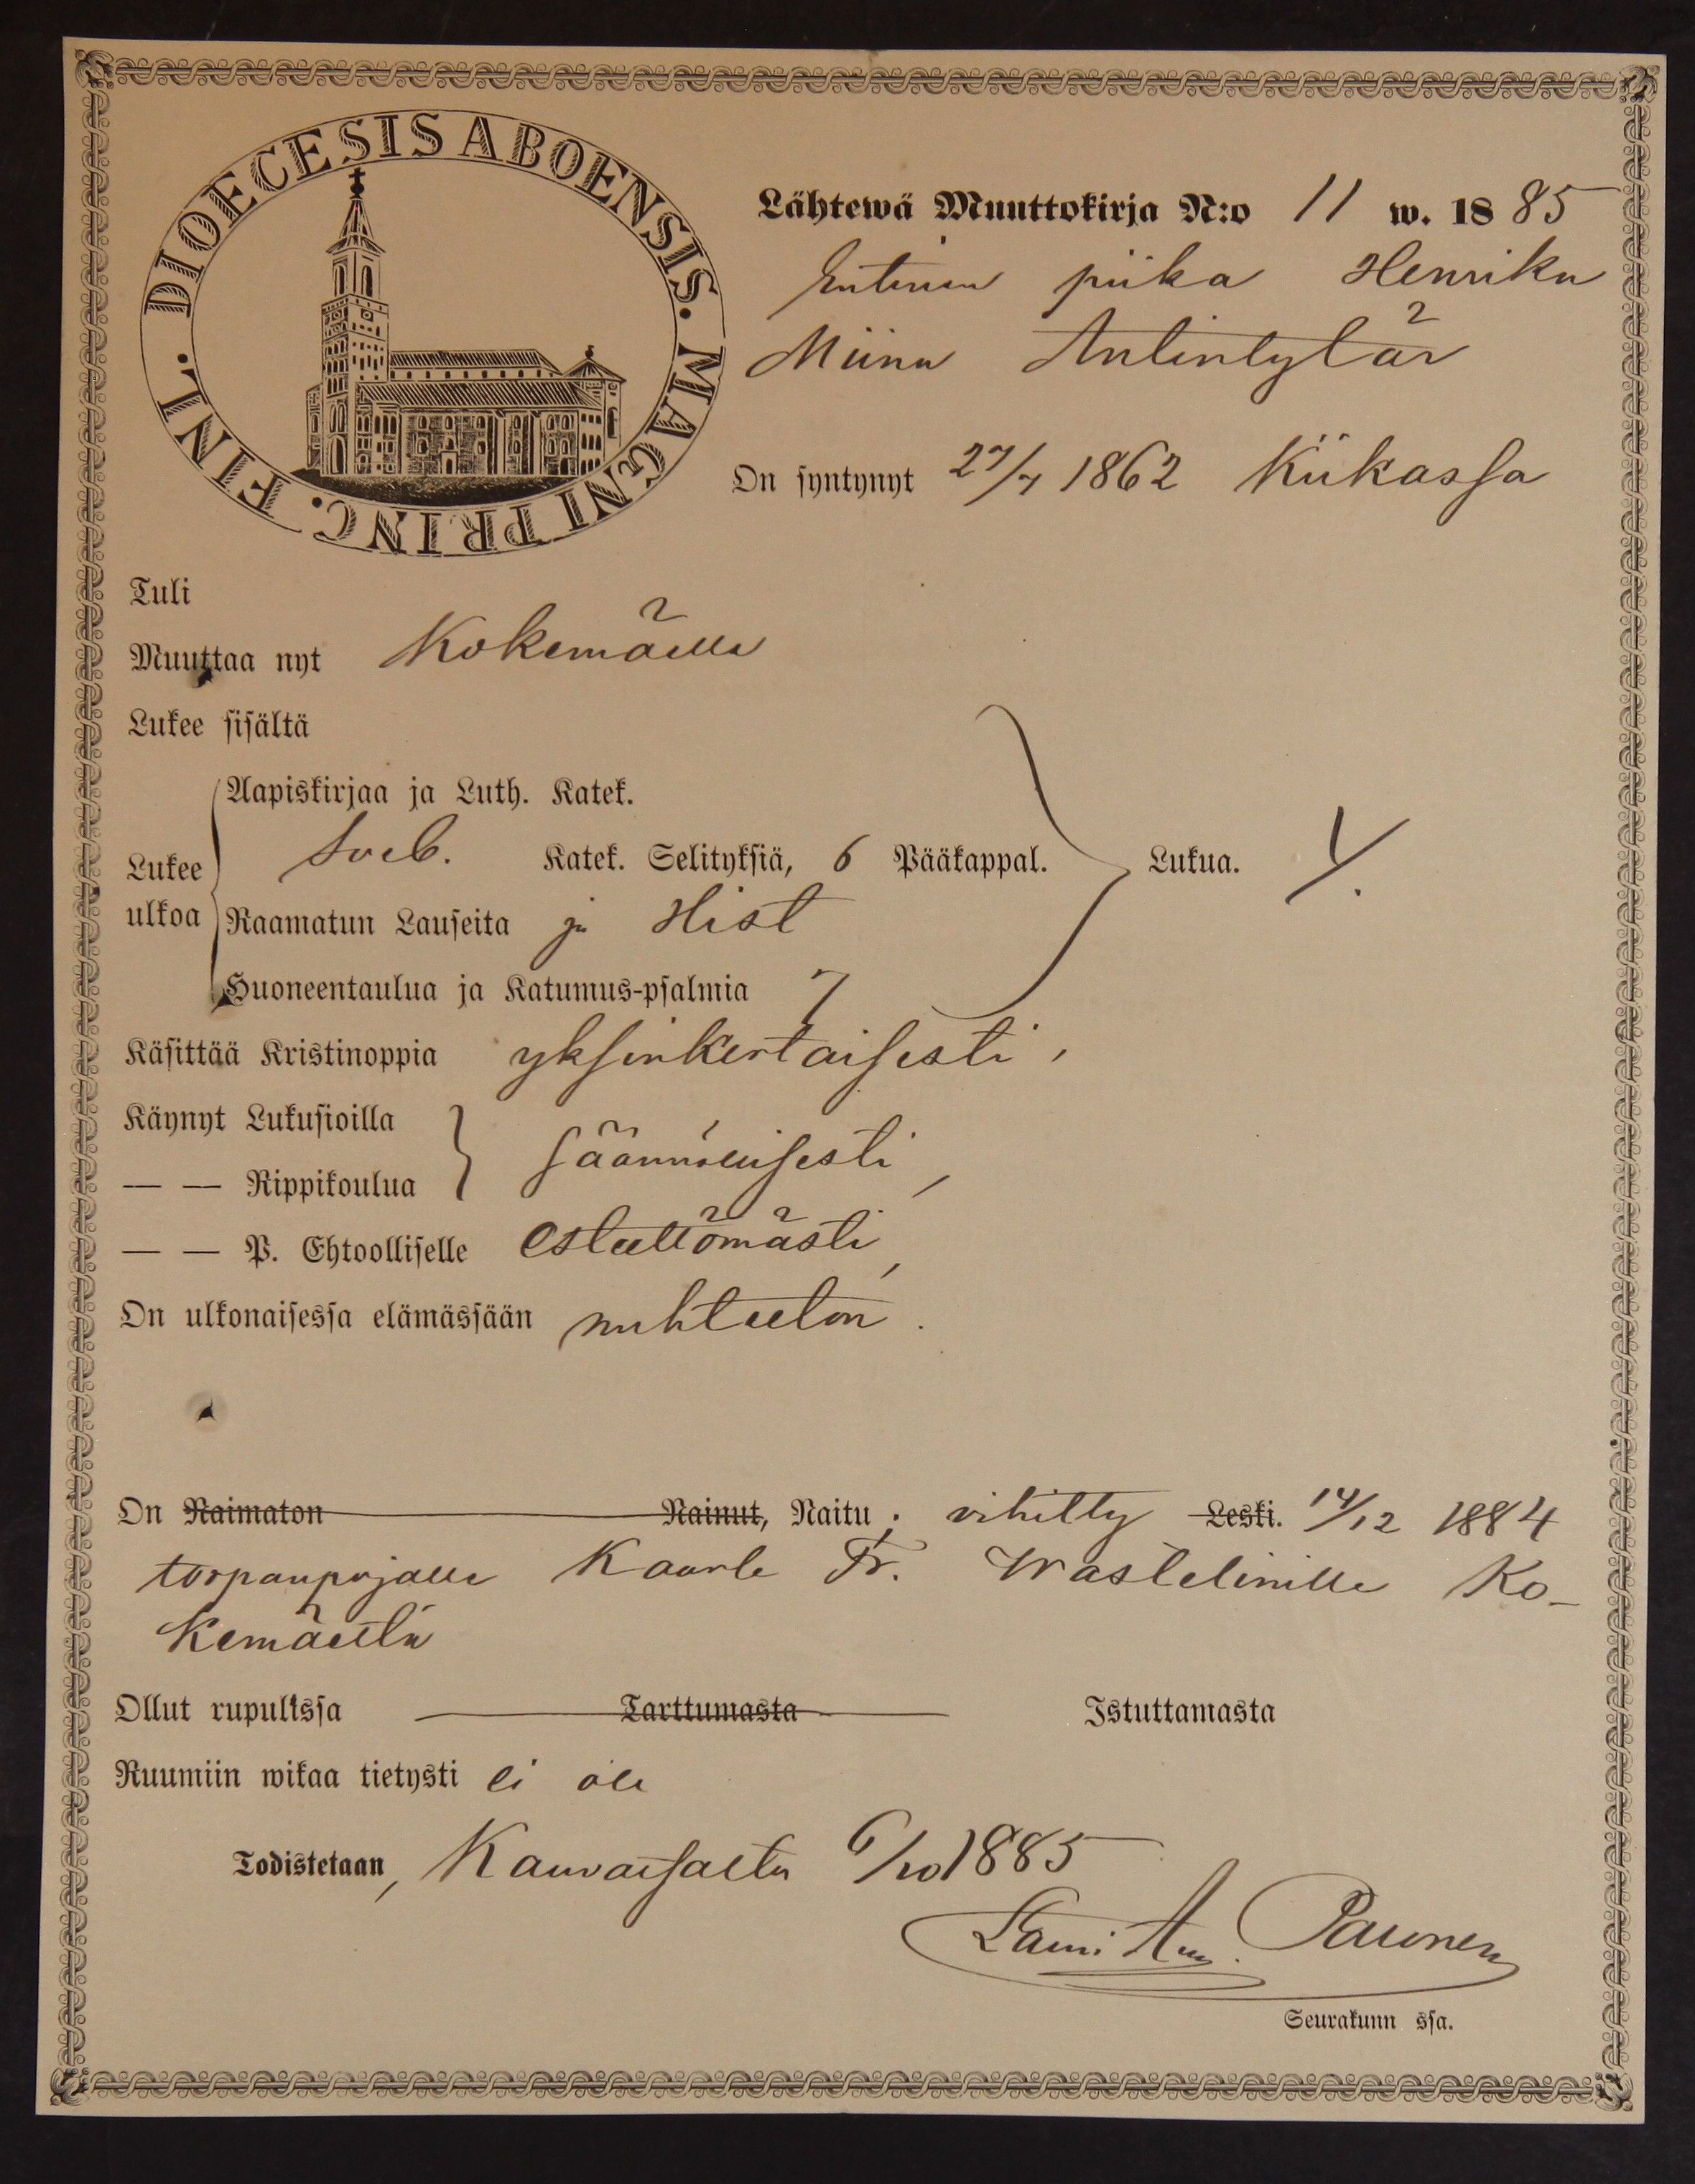 DIOECESIS ABOENSIS. MAGNI PRINC. FINL.
Lähtewä Muuttokirja N:o 11 w. 1885
Entinen piika Henrika
Miina Antintytär
On syntynyt 27/7 1862 Kiikassa
Tuli
Muuttaa nyt Kokemäelle
Lukee sisältä
Aapiskirjaa ja Luth. Katek.
Lukee Sveb. Katek. Selityksiä, 6 Pääkappal. Lukua.
ulkoa Raamatun Lauseita ja Hist
Huoneentaulua ja Katumus-psalmia 7
Käsittää Kristinoppia yksinkertaisesti,
Käynyt Lukusioilla
säännöllisesti,
— — Rippikoulua
— — P. Ehtoolliselle esteettömästi,
On ulkonaisessa elämässään nuhteeton.
On Naimaton Nainut, Naitu; vihitty Leski. 14/12 1884
torpanpojalle Kaarle Fr. Wastelinille Ko-
kemäeltä
Ollut rupulissa Tarttumasta Istuttamasta
Ruumiin wikaa tietysti ei ole
Todistetaan, Kauvatsalta 6/10 1885
Paunonen
Seurakunn ssa.